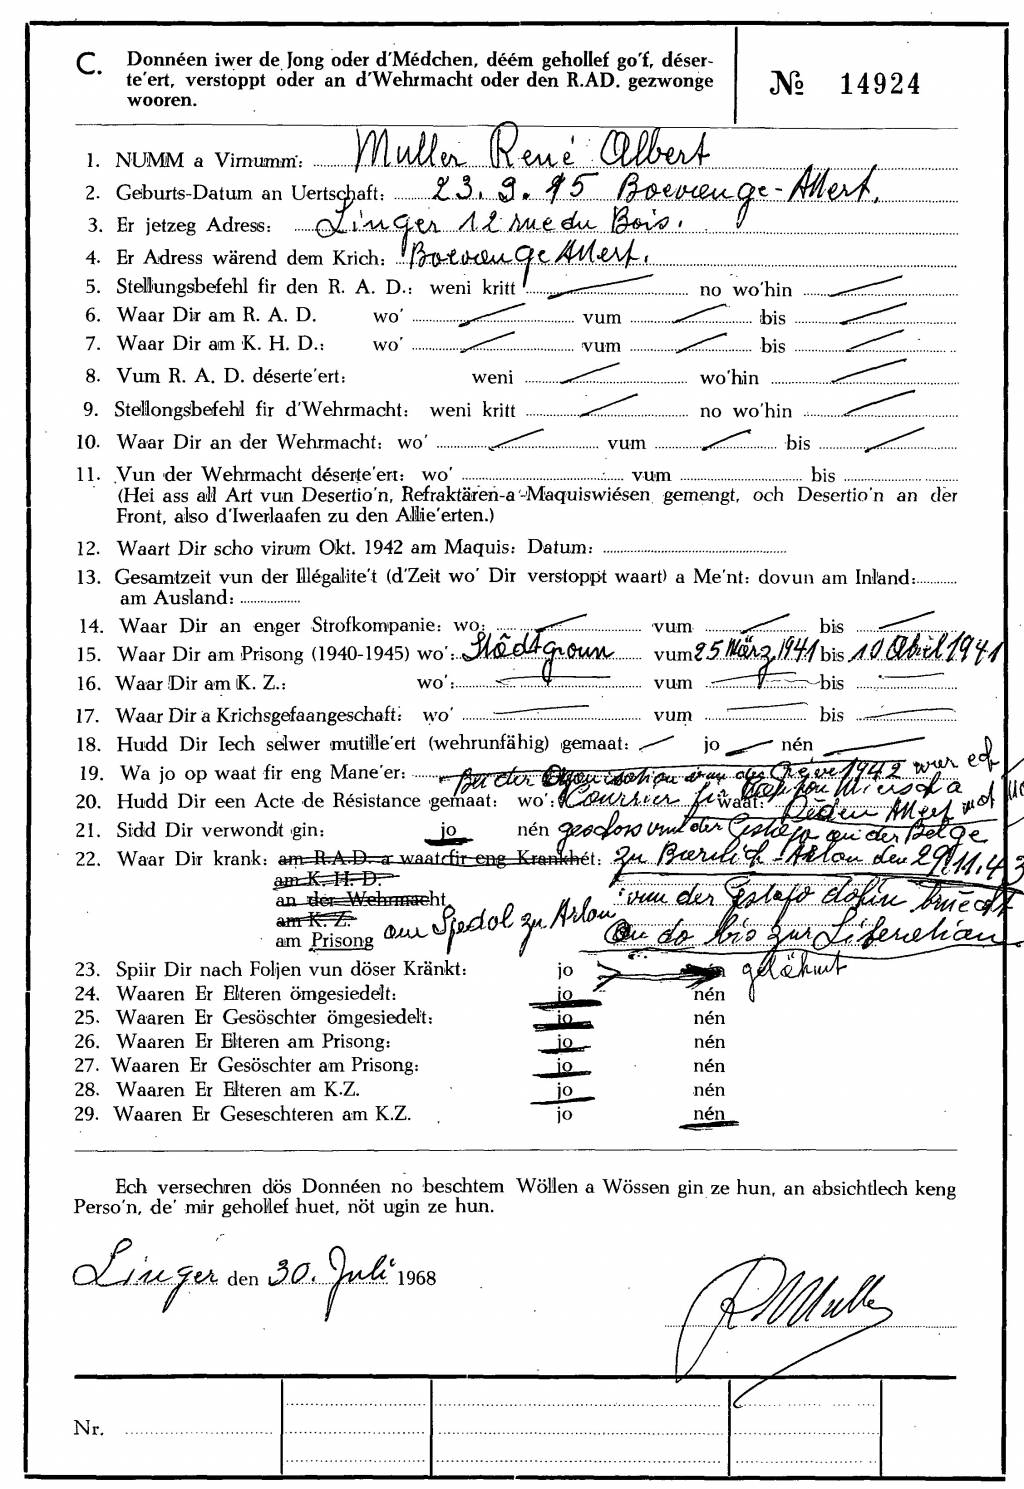 C. Donnéen iwer de Jong oder d'Médchen, déém gehollef go'f, déser-
te'ert, verstoppt oder an d'Wehrmacht oder den R.AD. gezwonge
wooren.
№ 14924
1. NUMM a Virnumm: Muller René Albert
2. Geburts-Datum an Uertschaft: 23.9.15 Boevange-Attert.
3. Er jetzeg Adress: Linger 12 rue du Bois.
4. Er Adress wärend dem Krich: Boevange Attert.
5. Stellungsbefehl fir den R. A. D.: weni kritt no wo'hin
6. Waar Dir am R. A. D. wo' vum bis
7. Waar Dir am K. H. D.: wo' vum bis
8. Vum R. A. D. déserte'ert: weni wo'hin
9. Stellongsbefehl fir d'Wehrmacht: weni kritt no wo'hin
10. Waar Dir an der Wehrmacht: wo' vum bis
11. Vun der Wehrmacht déserte'ert: wo' vum bis
(Hei ass all Art vun Desertio'n, Refraktären-a'-Maquiswiésen gemengt, och Desertio'n an der
Front, also d'Iwerlaafen zu den Allie'erten.)
12. Waart Dir scho virum Okt. 1942 am Maquis: Datum:
13. Gesamtzeit vun der Illégalite't (d'Zeit wo' Dir verstoppt waart) a Me'nt: dovun am Inland:
am Ausland:
14. Waar Dir an enger Strofkompanie: wo: vum bis
15. Waar Dir am Prisong (1940-1945) wo': Stôdtgroun vum 25 März 1941 bis 10 Abril 1941
16. Waar Dir am K. Z.: wo': vum bis
17. Waar Dir a Krichsgefaangeschaft: wo' vum bis
18. Hudd Dir Iech selwer mutille'ert (wehrunfähig) gemaat: jo nén
19. Wa jo op waat fir eng Mane'er: Bei der Organisatioun vun der Grève 1942 war ech
20. Hudd Dir een Acte de Résistance gemaat: wo': Courrier fir waat: Miersch a
Réden Attert
21. Sidd Dir verwondt gin: jo nén geschoss vun der Gestapo an der Belge
22. Waar Dir krank: am R.A.D. a waat fir eng Krankhét: zu - Arlon den 29.11.43
am K. H. D.
an der Wehrmacht vun der Gestapo dohin bruecht
am K. Z.
am Prisong am Spedol zu Arlon an do bis zur Liberation
23. Spiir Dir nach Foljen vun döser Kränkt: jo nén gelähmt
24. Waaren Er Elteren ömgesiedelt: jo nén
25. Waaren Er Gesöschter ömgesiedelt: jo nén
26. Waaren Er Elteren am Prisong: jo nén
27. Waaren Er Gesöschter am Prisong: jo nén
28. Waaren Er Elteren am K.Z. jo nén
29. Waaren Er Geseschteren am K.Z. jo nén
Ech versechren dös Donnéen no beschtem Wöllen a Wössen gin ze hun, an absichtlech keng
Perso'n, de' mir gehollef huet, nöt ugin ze hun.
Linger den 30. Juli 1968
R Muller
Nr.